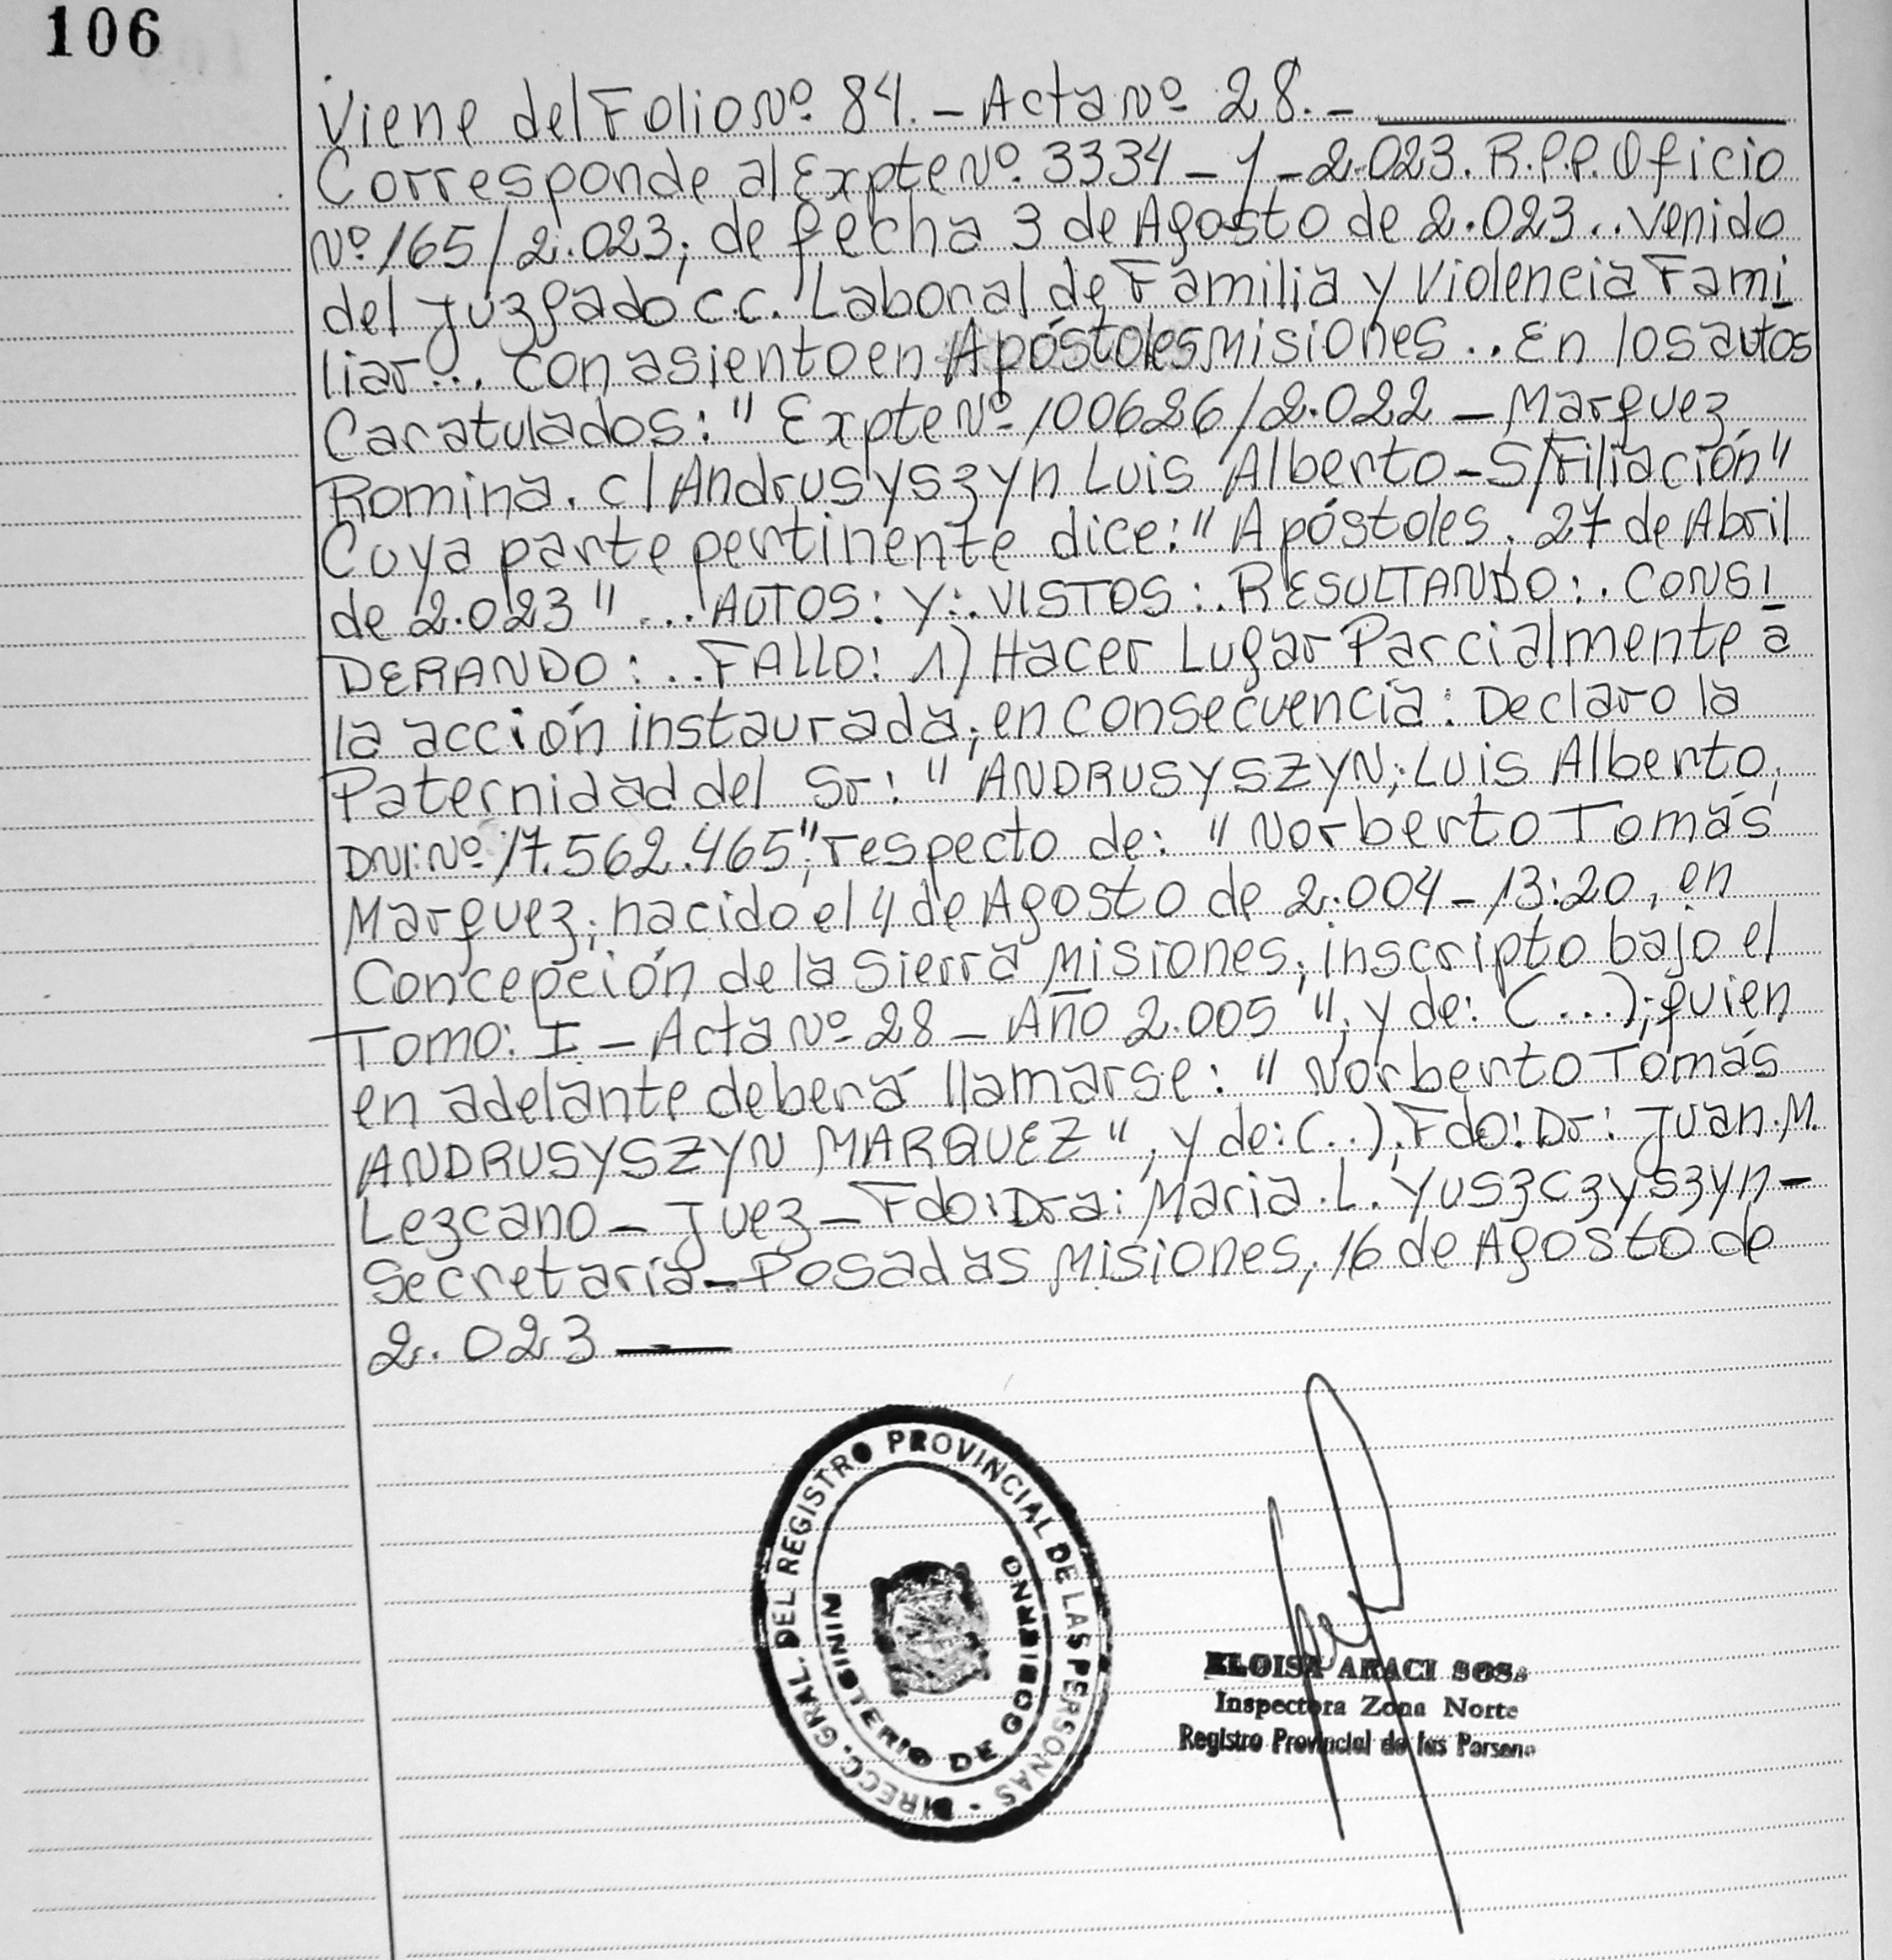 106
Viene del Folio Nº 84. - Acta Nº 28. -
Corresponde al Expte Nº. 3334 - Y - 2.023. R.P.P. Oficio
Nº 165/2.023; de fecha 3 de Agosto de 2.023.. venido
del Juzgado C.C. Laboral de Familia y Violencia Fami
liar... con asiento en Apóstoles Misiones.. En los autos
Caratulados: " Expte Nº 100626/2.022 - Marquez
Romina. c/ Andrusyszyn Luis Alberto - S/Filiación"
Cuya parte pertinente dice: " Apóstoles, 27 de Abril
de 2.023 " ... AUTOS: Y:. VISTOS:. RESULTANDO:. CONSI
DERANDO: .. FALLO: 1) Hacer Lugar Parcialmente a
la acción instaurada; en consecuencia: Declaro la
Paternidad del Sr: " ANDRUSYSZYN; Luis Alberto,
DNI: Nº 17.562.465"; respecto de: " Norberto Tomás
Marquez; nacido el 4 de Agosto de 2.004 - 13:20, en
Concepción de la Sierra Misiones; inscripto bajo el
Tomo: I - Acta Nº 28 - Año 2.005 ", y de: (...); quien
en adelante deberá llamarse: " Norberto Tomás
ANDRUSYSZYN MARQUEZ ", y de: (..). Fdo: Dr: Juan. M.
Lezcano - Juez - Fdo: Dra: Maria. L. Yuszczyszyn -
Secretaria - Posadas Misiones, 16 de Agosto de
2.023
DIRECC. GRAL. DEL REGISTRO PROVINCIAL DE LAS PERSONAS -
MINISTERIO DE GOBIERNO
ELOISA ARACI SOSA
Inspectora Zona Norte
Registro Provincial de las Persona